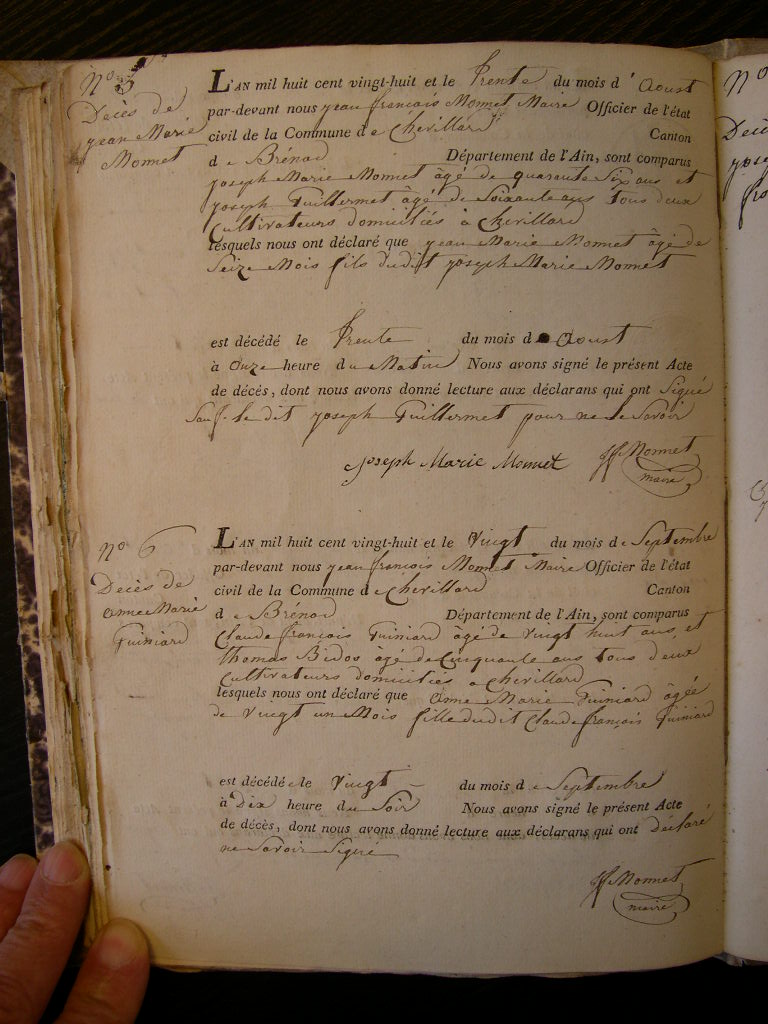 Nº 5
Décès de
jean Marie
Monnet
L'AN mil huit cent vingt-huit et le trente du mois d' Aoust
par-devant nous jean françois Monnet Maire Officier de l'état
civil de la Commune de Chevillard Canton
de Brénod Département de l'Ain, sont comparus
joseph Marie Monnet âgé de quarante Six ans et
joseph Guillermet âgé de Soixante ans tous deux
Cultivateurs domiciliés à Chevillard
lesquels nous ont déclaré que jean Marie Monnet âgé de
Seize Mois fils dudit joseph Marie Monnet
est décédé le trente du mois d Aoust
à onze heure du Matin Nous avons signé le présent Acte
de décés, dont nous avons donné lecture aux déclarans qui ont Signé
Sauf le dit joseph Guillermet pour ne le Savoir
Joseph Marie Monnet Monnet
maire
nº 6
Décès de
anne Marie
Guiniard
L'AN mil huit cent vingt-huit et le vingt du mois de Septembre
par-devant nous jean françois Monnet Maire Officier de l'état
civil de la Commune de Chevillard Canton
de Brénod Département de l'Ain, sont comparus
Claude françois Guiniard âgé de vingt huit ans, et
thomas Bidos âgé de Cinquante ans tous deux
Cultivateurs domiciliés a Chevillard
lesquels nous ont déclaré que anne Marie Guiniard âgée
de vingt un Mois fille dudit Claude françois Guiniard
est décédé e le vingt du mois de Septembre
à dix heure du Soir Nous avons signé le présent Acte
de décès, dont nous avons donné lecture aux déclarans qui ont déclaré
ne Savoir Signé
Monnet
maire
Nº
Décè
jose
fro